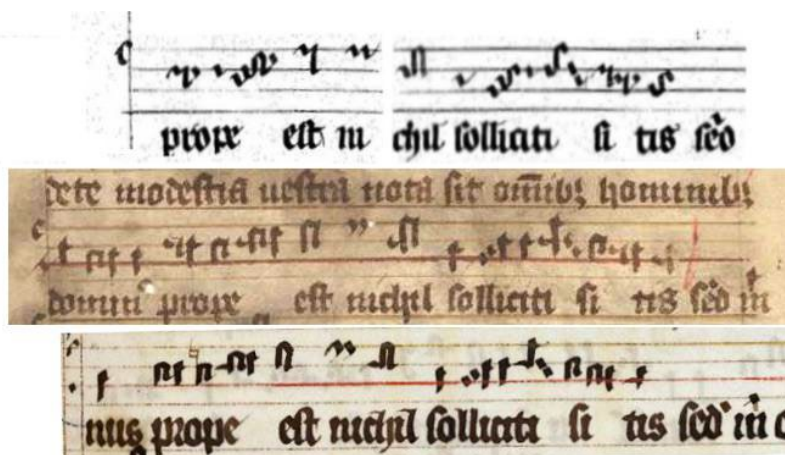 prope est ni chil solliciti si tis sed
dete modestia uestra nota sit omibꝫ hominibꝫ
domin prope est nichil solliciti si tis sed in
nus prope est nichil solliciti si tis sed in o